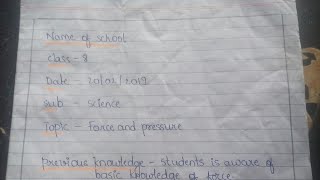 Name of school
class - 8
Date - 20/02/2019
Sub - science
Topic - Force and pressure
previous knowledge - students is aware of
basic knowledge of force.